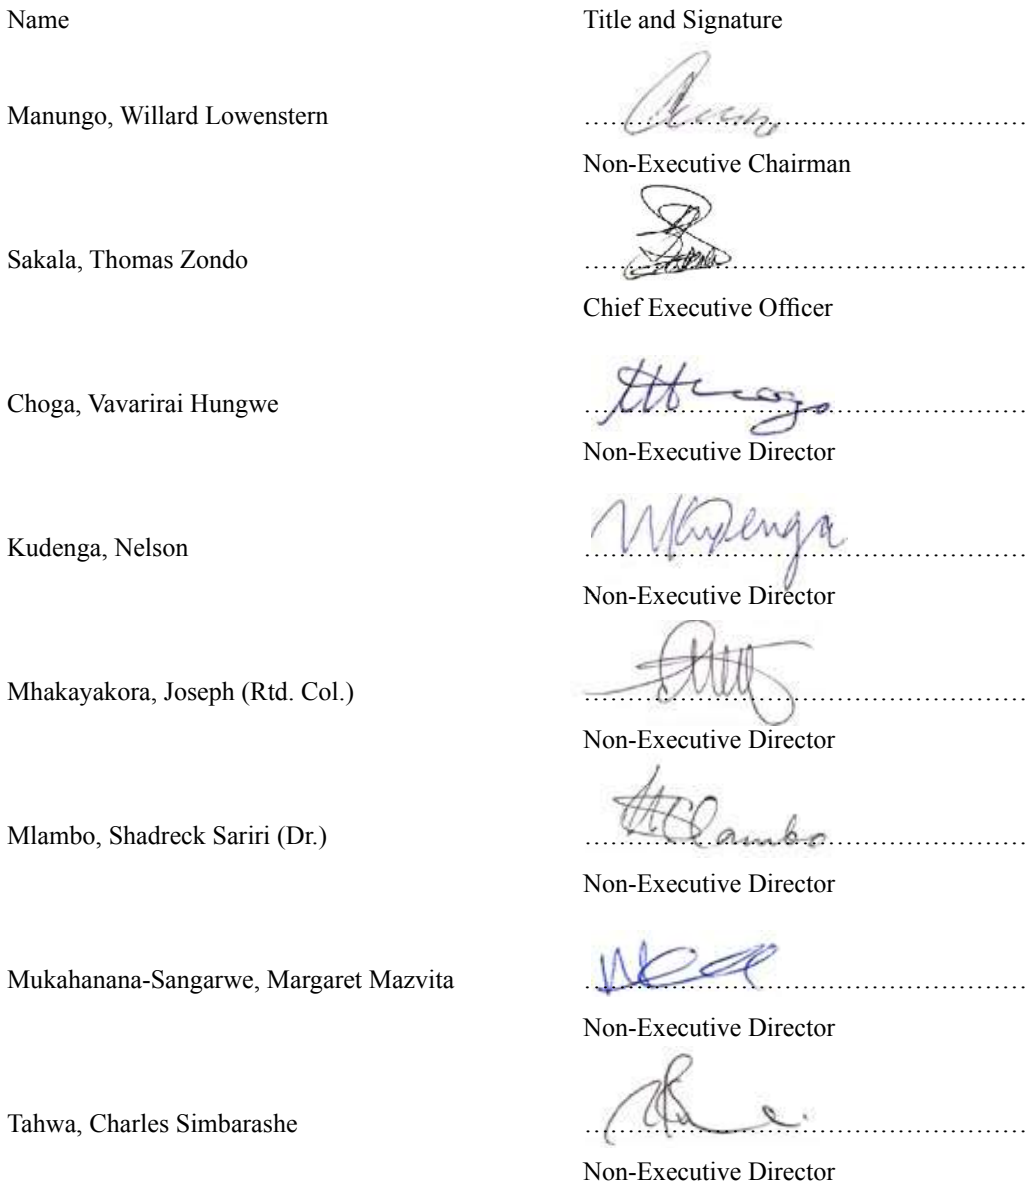 Name Title and Signature
Manungo, Willard Lowenstern ................................................
Non-Executive Chairman
Sakala, Thomas Zondo ................................................
Chief Executive Officer
Choga, Vavarirai Hungwe ................................................
Non-Executive Director
Kudenga, Nelson ................................................
Non-Executive Director
Mhakayakora, Joseph (Rtd. Col.) ................................................
Non-Executive Director
Mlambo, Shadreck Sariri (Dr.) ................................................
Non-Executive Director
Mukahanana-Sangarwe, Margaret Mazvita ................................................
Non-Executive Director
Tahwa, Charles Simbarashe ................................................
Non-Executive Director